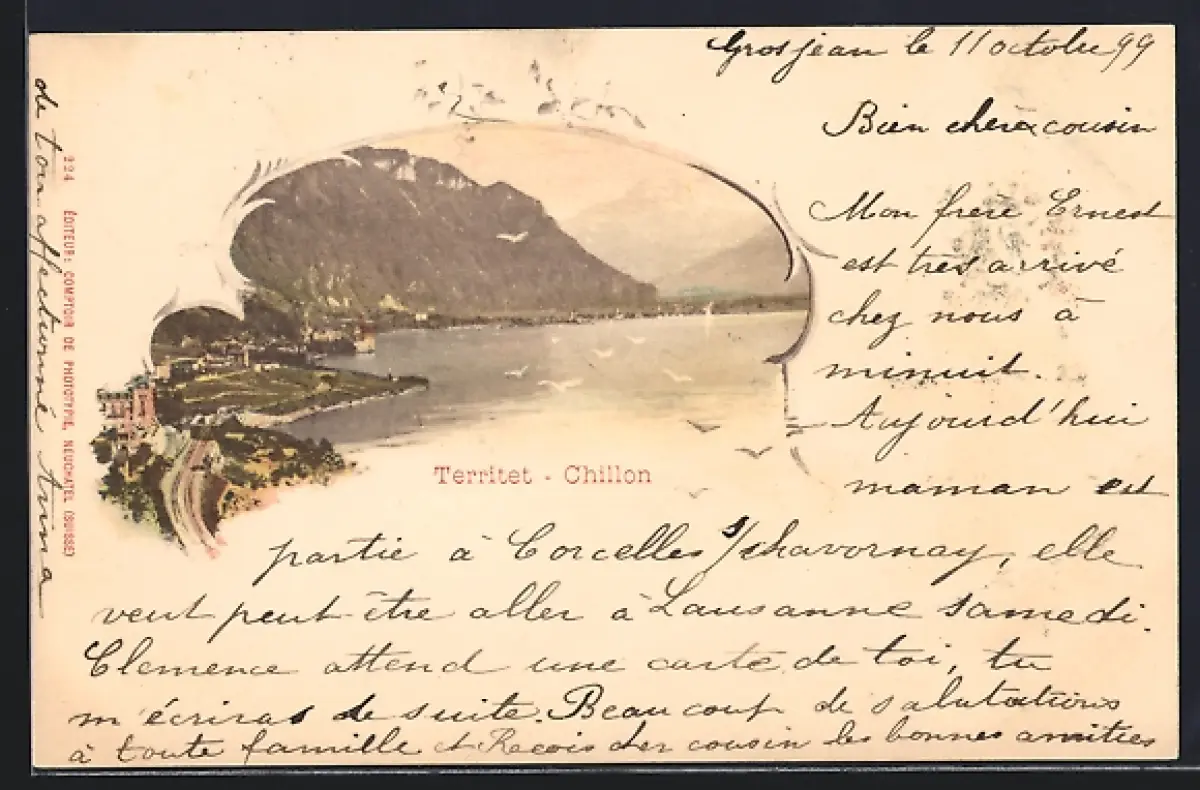 Grosjean le 11 octobre 99
Bien cher cousin
Mon frère Ernest
est tres arrivé
chez nous à
minuit.
Aujourd'hui
maman est
partie à Corcelles s/chavornay, elle
veut peut-être aller à Lausanne samedi.
Clemence attend une carte de toi, tu
m'écriras de suite. Beaucoup de salutations
à toute famille et Recois cher cousin les bonnes amitiés
de ton affectionné
Territet - Chillon
324 ÉDITEUR: COMPTOIR DE PHOTOTYPIE, NEUCHATEL (SUISSE)